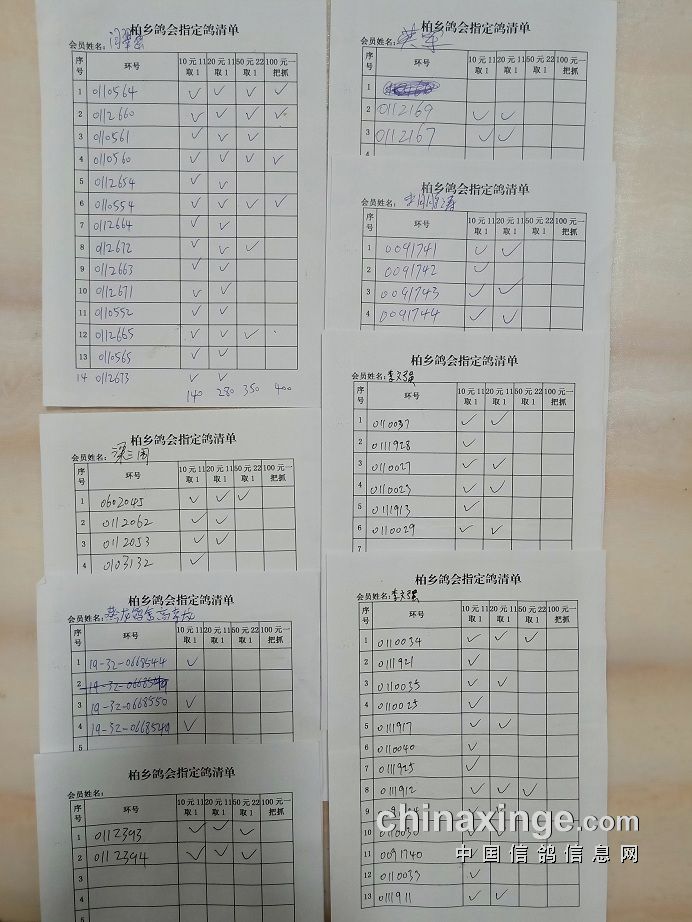 柏乡鸽会指定鸽清单
会员姓名:
序号 环号 10元11取1 20元11取1 50元22取1 100元一把抓
1 0110564 ✓ ✓ ✓ ✓
2 0112660 ✓ ✓ ✓ ✓
3 0110561 ✓ ✓ ✓
4 0110560 ✓ ✓ ✓ ✓
5 0112654 ✓ ✓
6 0110554 ✓ ✓ ✓ ✓
7 0112664 ✓ ✓
8 0112672 ✓ ✓ ✓
9 0112663 ✓ ✓
10 0112671 ✓ ✓
11 0110552 ✓ ✓
12 0112665 ✓ ✓ ✓
13 0110565 ✓ ✓
14 0112673 ✓ ✓
140 280 350 400
柏乡鸽会指定鸽清单
会员姓名: 梁三周
序号 环号 10元11取1 20元11取1 50元22取1 100元一把抓
1 0602045 ✓ ✓ ✓
2 0112062 ✓ ✓
3 0112053 ✓ ✓
4 0103132 ✓
柏乡鸽会指定鸽清单
会员姓名:
序号 环号 10元11取1 20元11取1 50元22取1 100元一把抓
1 19-32-0668544 ✓
2
3 19-32-0668550 ✓
4 19-32-0668549 ✓
5
柏乡鸽会指定鸽清单
会员姓名:
序号 环号 10元11取1 20元11取1 50元22取1 100元一把抓
1 0112393 ✓ ✓ ✓
2 0112394 ✓ ✓ ✓
柏乡鸽会指定鸽清单
会员姓名: 英军
序号 环号 10元11取1 20元11取1 50元22取1 100元一把抓
1
2 0112169 ✓ ✓
3 0112167 ✓ ✓
4
柏乡鸽会指定鸽清单
会员姓名:
序号 环号 10元11取1 20元11取1 50元22取1 100元一把抓
1 0091741 ✓ ✓
2 0091742 ✓
3 0091743 ✓ ✓
4 0091744 ✓ ✓
柏乡鸽会指定鸽清单
会员姓名: 李文强
序号 环号 10元11取1 20元11取1 50元22取1 100元一把抓
1 0110037 ✓ ✓
2 0111928 ✓
3 0110027 ✓ ✓
4 0110023 ✓ ✓
5 0111913 ✓
6 0110029 ✓ ✓
7
柏乡鸽会指定鸽清单
会员姓名: 李文强
序号 环号 10元11取1 20元11取1 50元22取1 100元一把抓
1 0110034 ✓ ✓ ✓
2 0111921 ✓
3 0110035 ✓ ✓
4 0110025 ✓
5 0111917 ✓ ✓
6 0110040 ✓
7 0111925 ✓
8 0111912 ✓ ✓ ✓
9
10 0110030 ✓ ✓
11 0091740 ✓
12 0110033 ✓
13 0111911 ✓ ✓
chinaxinge.com
中国信鸽信息网